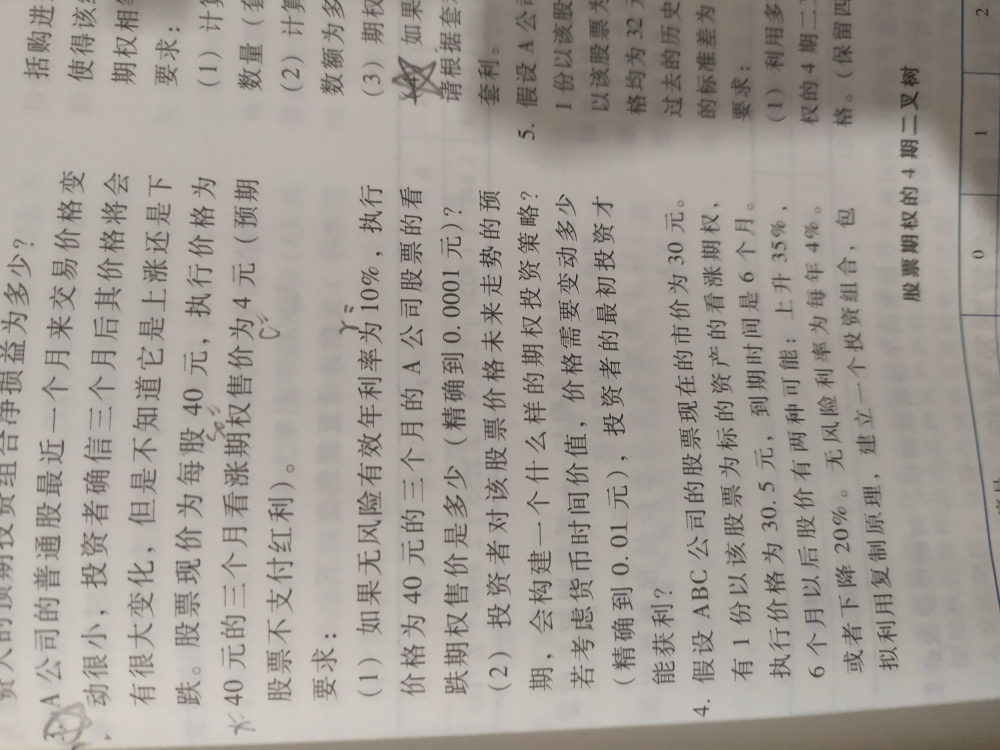 资人的预期投资组合净损益为多少?
3. A公司的普通股最近一个月来交易价格变
动很小,投资者确信三个月后其价格将会
有很大变化,但是不知道它是上涨还是下
跌。股票现价为每股40元,执行价格为
40元的三个月看涨期权售价为4元(预期
股票不支付红利)。
要求:
(1)如果无风险有效年利率为10%,执行
价格为40元的三个月的A公司股票的看
跌期权售价是多少(精确到0.0001元)?
(2)投资者对该股票价格未来走势的预
期,会构建一个什么样的期权投资策略?
若考虑货币时间价值,价格需要变动多少
(精确到0.01元),投资者的最初投资才
能获利?
4. 假设ABC公司的股票现在的市价为30元。
有1份以该股票为标的资产的看涨期权,
执行价格为30.5元,到期时间是6个月。
6个月以后股价有两种可能:上升35%,
或者下降20%。无风险利率为每年4%。
拟利用复制原理,建立一个投资组合,包
括购进
使得该
期权相
要求:
(1)计算
数量(套
(2)计算
数额为多
(3)期权
如果
请根据套
套利。
5. 假设A公
1份以该股
以该股票为
格均为32元
过去的历史
的标准差为
要求:
(1)利用多
权的4期二
格。(保留四
股票期权的4期二叉树
0 1 2